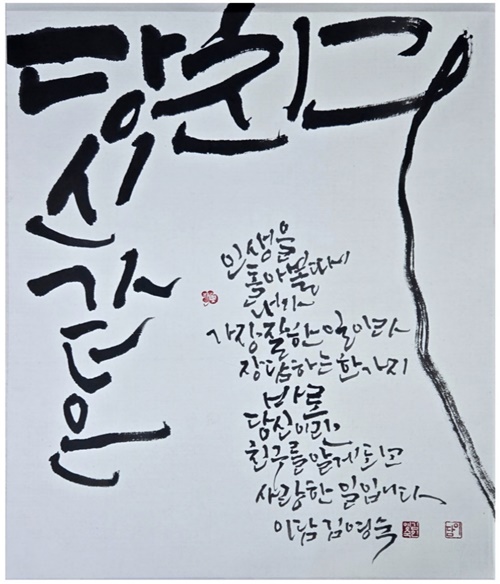 당신
같은
친구
인생을
돌아볼때
내가
가장 잘한 일이라
장담하는 한가지
바로
당신이란
친구를 알게되고
사랑한 일입니다
이담 김영숙